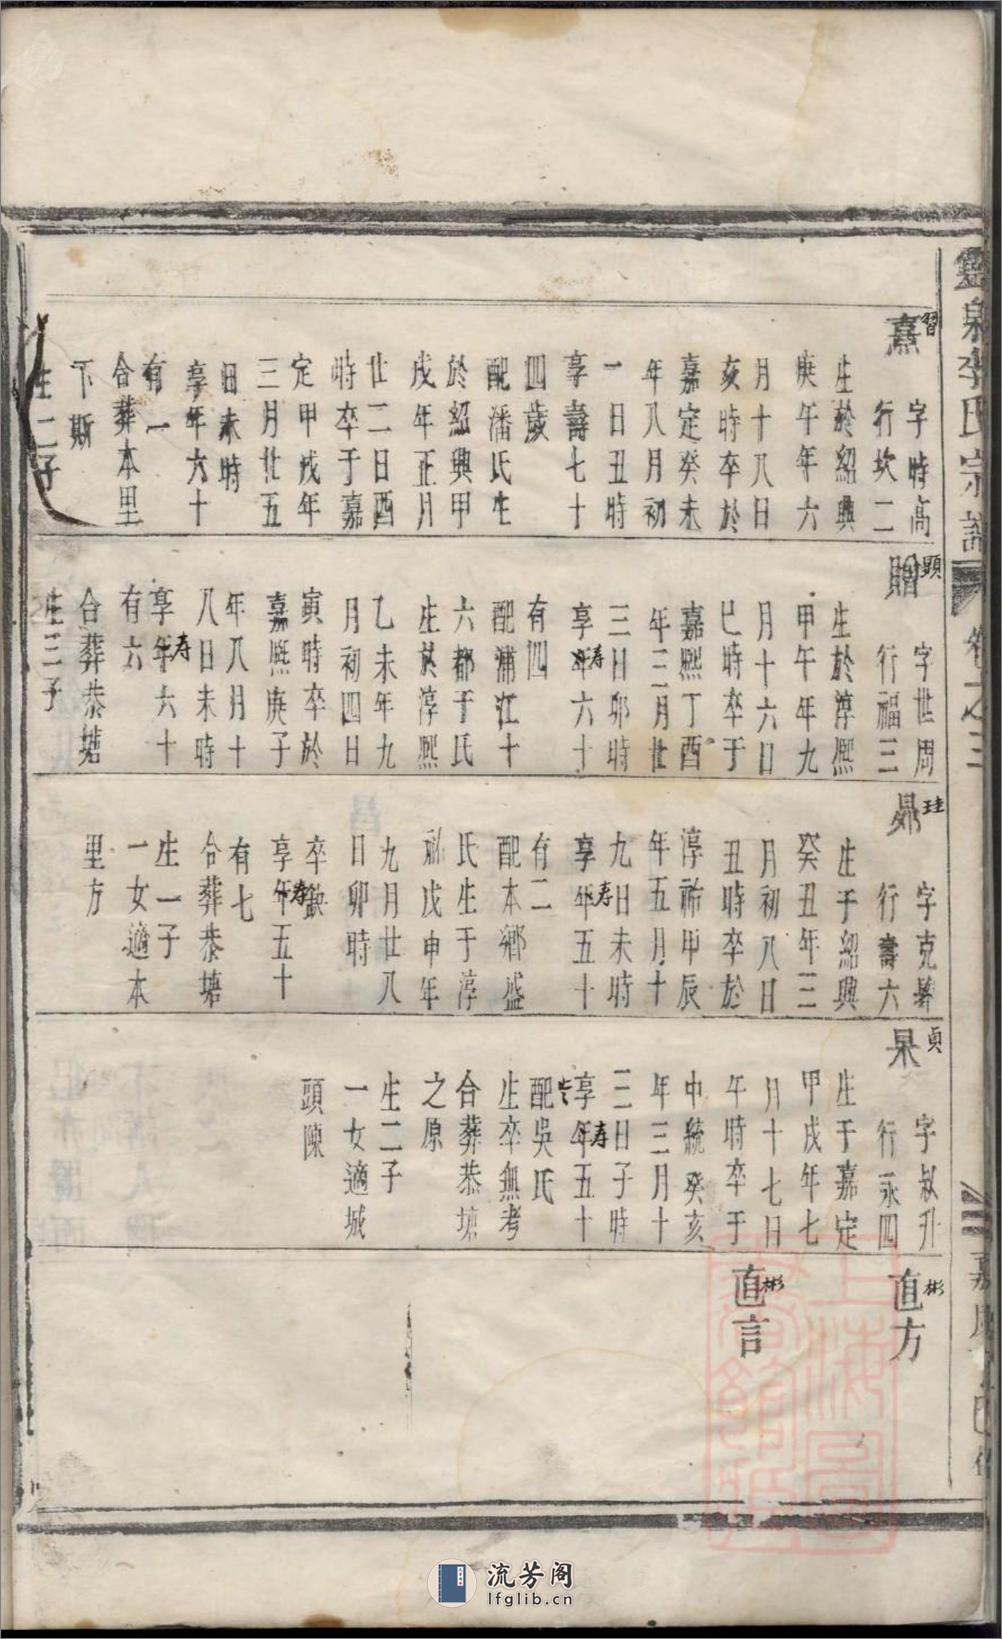 靈泉李氏宗譜
卷之三
習
熹
字時高
行坎二
生於紹興
庚午年六
月十八日
亥時卒於
嘉定癸未
年八月初
一日丑時
享壽七十
四歲
配潘氏生
於紹興甲
戌年正月
廿二日酉
時卒于嘉
定甲戌年
三月廿五
日未時
享年六十
有一
合葬本里
下斯
生二子
顯
贈
字世周
行福三
生於淳熙
甲午年九
月十六日
巳時卒于
嘉熙丁酉
年三月廿
三日卯時
享年寿六十
有四
配浦江十
六都于氏
生於淳熙
乙未年九
月初四日
寅時卒於
嘉熙庚子
年八月十
八日未時
享年寿六十
有六
合葬恭塘
生三子
珪
字克
行壽六
生于紹興
癸丑年三
月初八日
丑時卒於
淳祐甲辰
年五月十
九日未時
享年寿五十
有二
配本鄉盛
氏生于淳
祐戊申年
九月廿八
日卯時
卒缺
享年寿五十
有七
合葬恭塘
生一子
一女適本
里方
貞
杲
字叔升
行永四
生于嘉定
甲戌年七
月十七日
午時卒于
中統癸亥
年三月十
三日子時
享年寿五十
配吳氏
生卒無考
合葬恭塘
之原
生二子
一女適城
頭陳
彬
直方
彬
直言
流芳阁
lfglib.cn